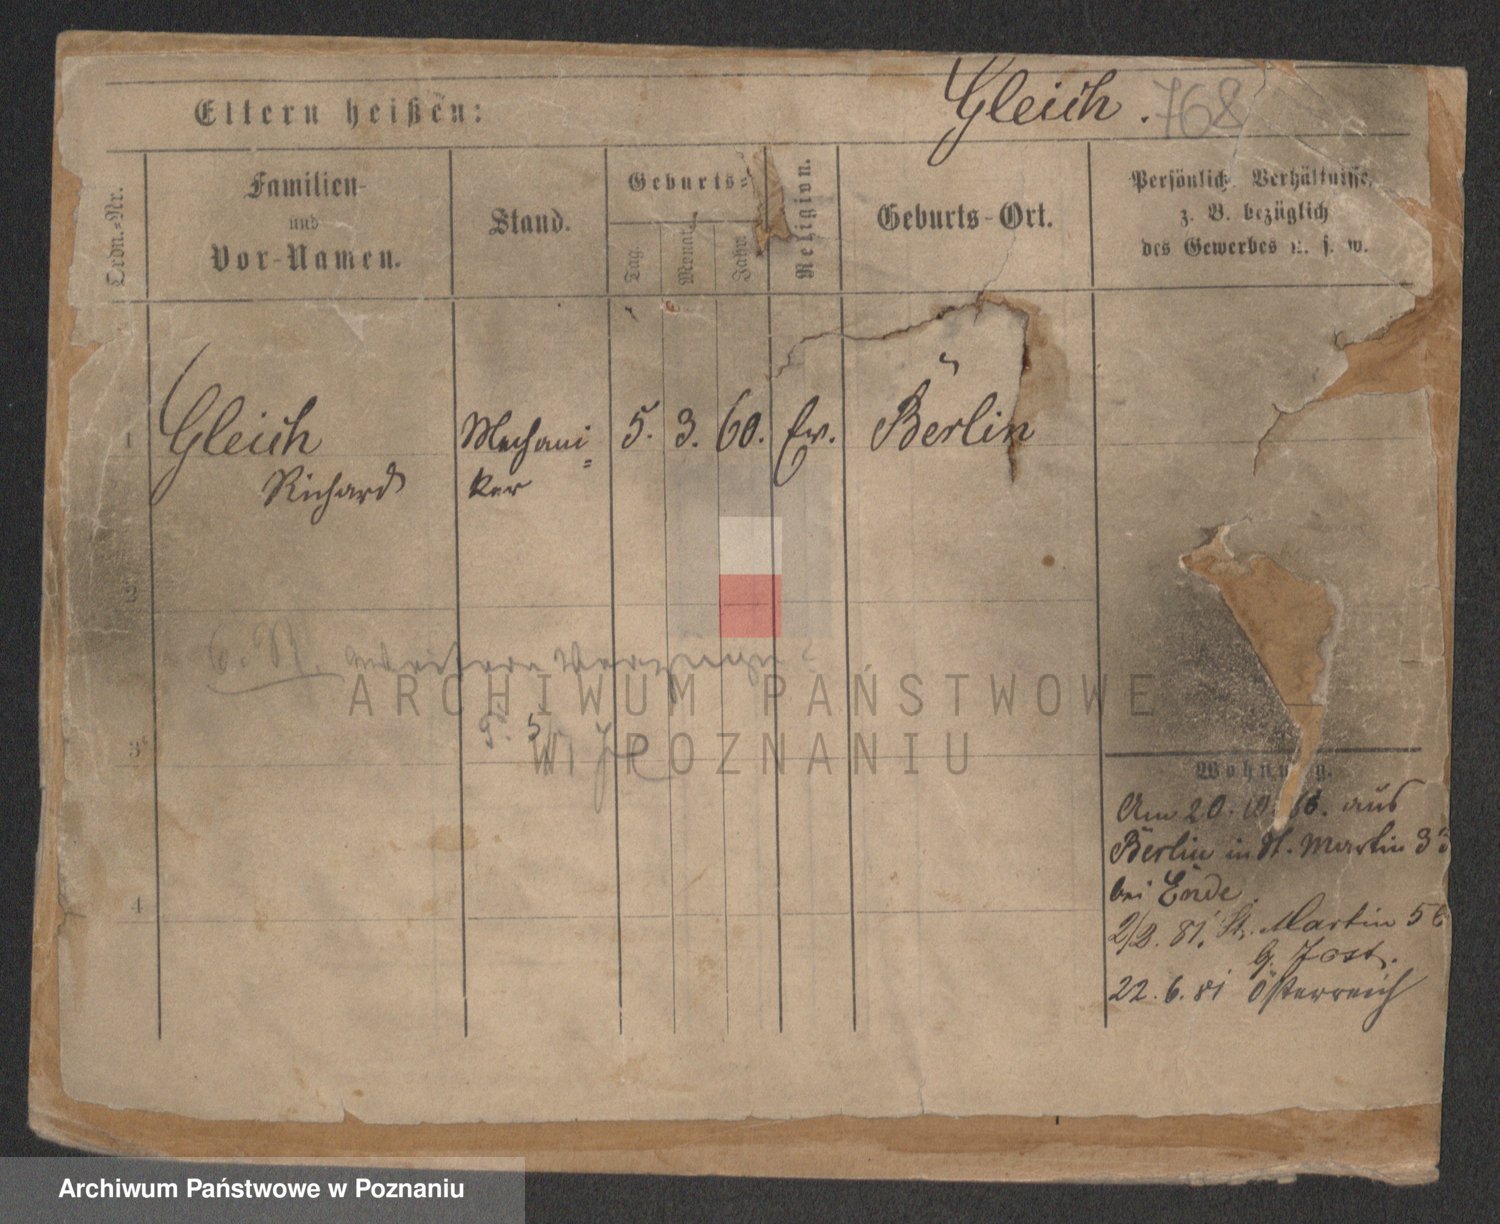 Eltern heißen:
Gleich. 768
Ordn.-Nr.
Familien-
und
Vor-Namen.
Stand.
Geburts-
Tag.
Monat.
Jahr.
Religion.
Geburts-Ort.
Persönlich. Verhältnisse,
z. B. bezüglich
des Gewerbes u. s. w.
1 Gleich Mechani= 5. 3. 60. Ev. Berlin
Richard ker
2
3
4
Wohnung.
Am 20. 10. aus
Berlin in St. Martin 33
bei Ende.
2/2. 81. St. Martin 56
b. Jost.
22. 6. 81 Österreich
ARCHIWUM PAŃSTWOWE
W POZNANIU
Archiwum Państwowe w Poznaniu